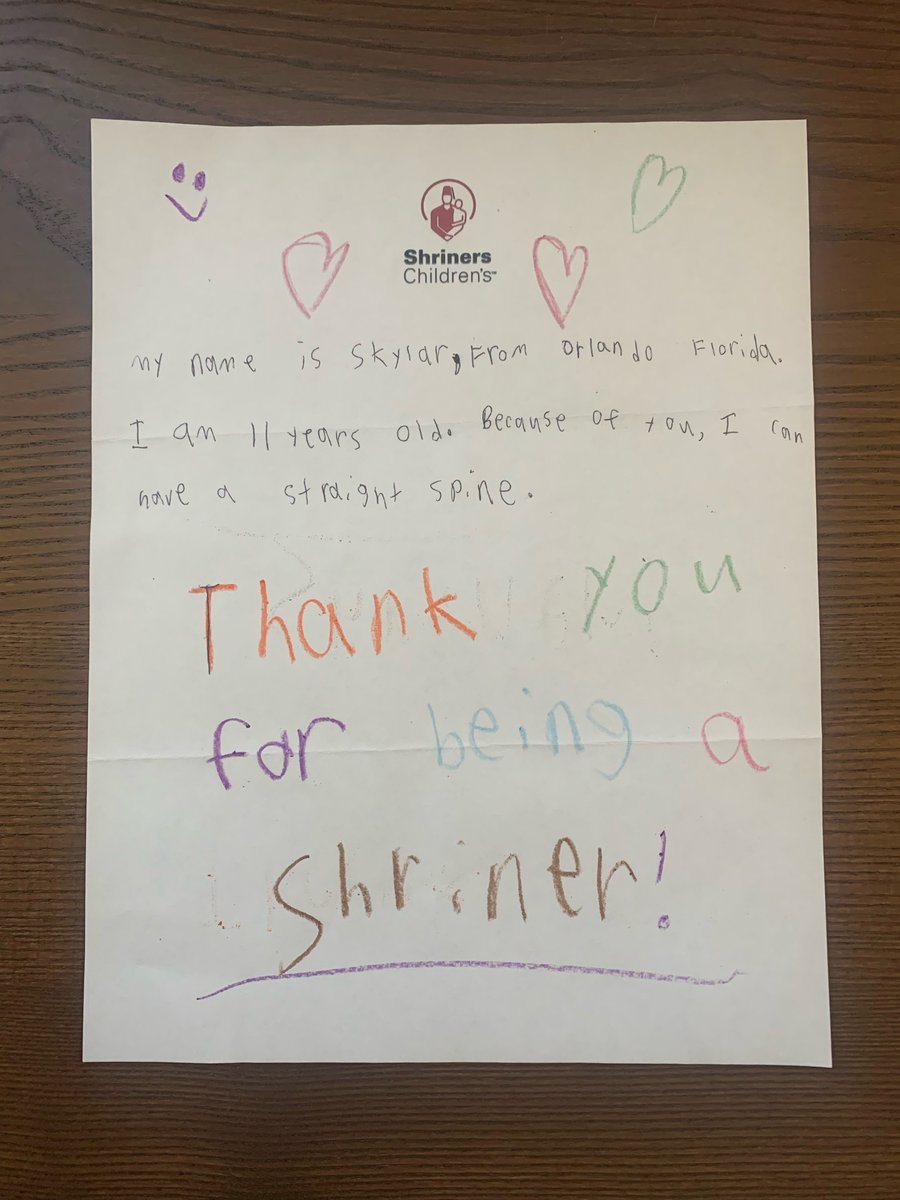 Shriners
Children's™
my name is Skylar, From Orlando Florida.
I am 11 years old. Because of you, I can
have a straight spine.
Thank you
for being a
Shriner!